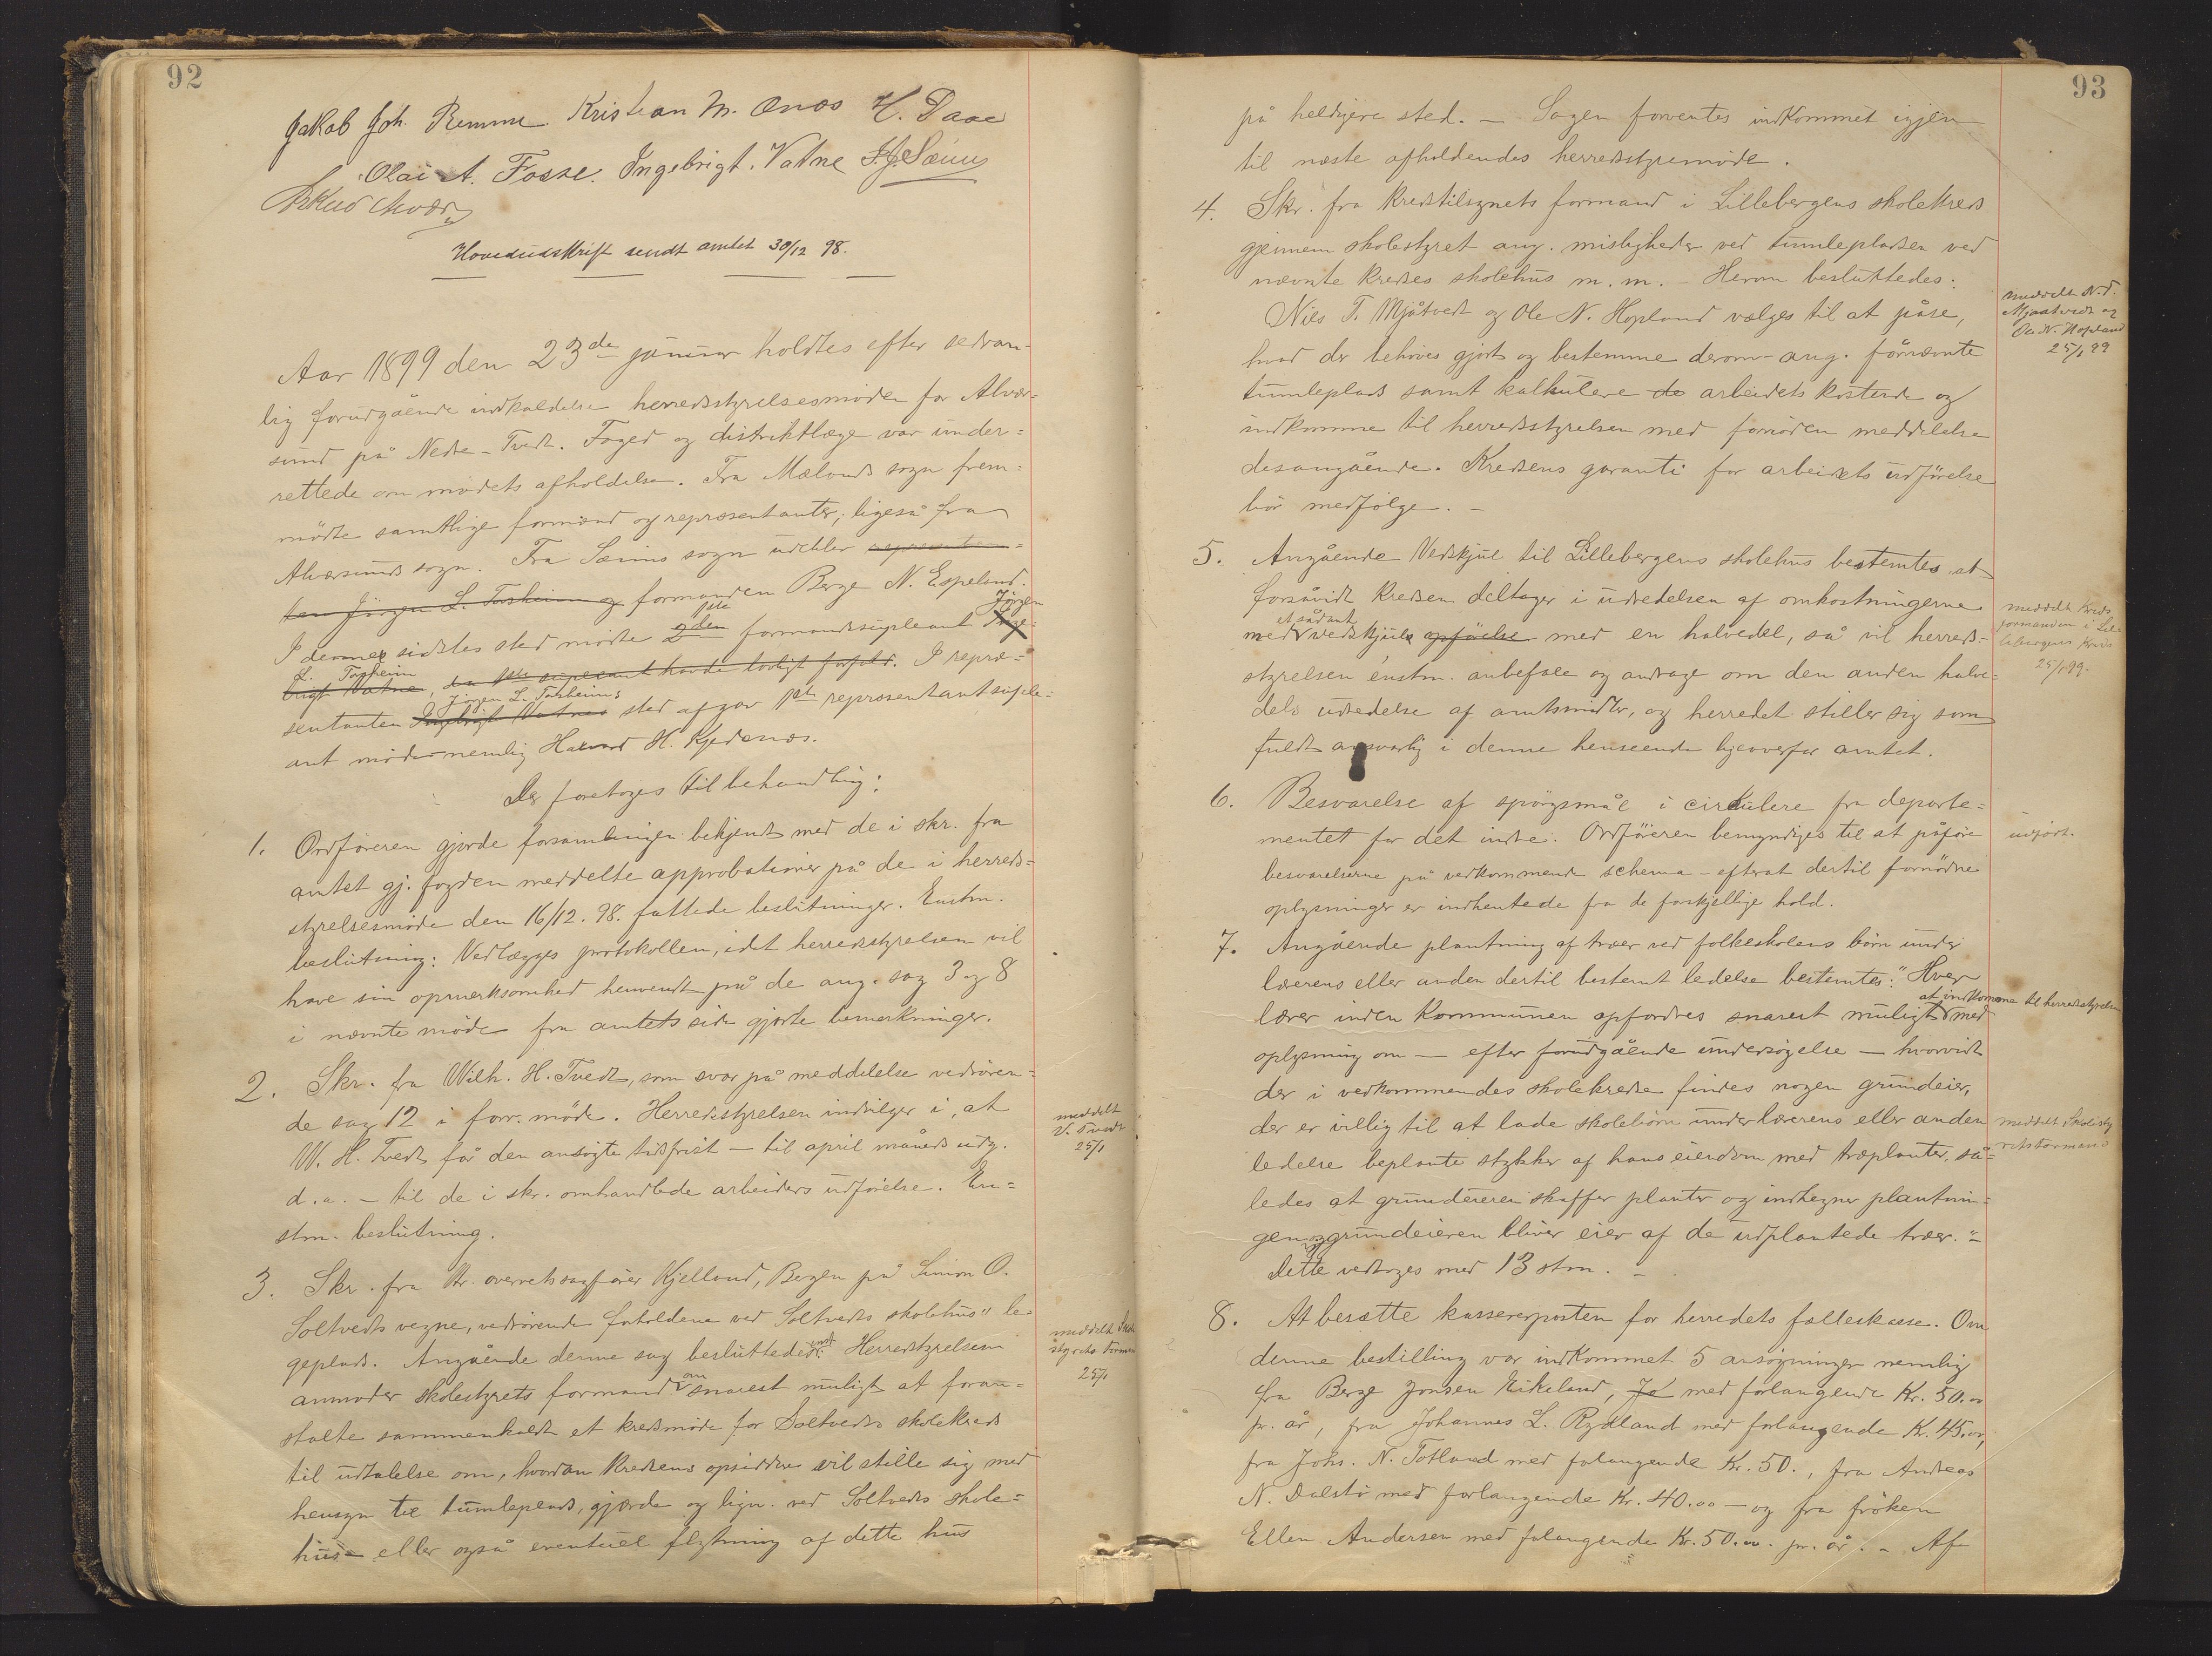 92
Jakob Joh. Remme Kristian M. Ones H. Daae
Olai A. Fosse. Ingebrigt. Vatne
Hovedudskrift sendt amtet 30/12 98.
Aar 1899 den 23de januar holdtes efter sedvan-
lig forudgående indkaldelse herredsstyrelsesmöde for Alver-
sund på Nedre-Tvedt. Foged og distriktlæge var under=
rettede om mödets afholdelse. Fra Mælands sogn frem=
mödte samtlige formænd og repræsentanter, ligeså fra
Alversunds sogn. Fra Sæims sogn udebler represen=
ten Jörgen L. Torsheim og formanden Berge N. Espeland.
I dennes sidstes sted mödte 2den 1ste formandssupleant Jörgen
L. Torsheim
brigt Vatne, da 1ste supleant havde lovligt forfald. I repræ=
Jörgen L. Torsheims
sentanten Ingebrigt Vatnes sted afgav 1ste repræsentantsuple=
ant möde nemlig Halvard H. Kjedenes.
Der foretoges til behandling:
1. Ordföreren gjorde forsamlingen bekjendt med de i skr. fra
amtet gj. fogden meddelte approbationer på de i herreds=
styrelsesmöde den 16/12. 98. fattede beslutninger. Enstm.
beslutning: Vedlægges protokollen, idet herredsstyrelsen vil
have sin opmerksomhed henvendt på de ang. sag 3 og 8
i nævnte möde fra amtets side gjorte bemerkninger.
2. Skr. fra Wilh. H. Tvedt, som svar på meddelelse vedrören=
de sag 12 i forr. möde. Herredsstyrelsen indvilger i, at
W. H. Tvedt får den ansögte tidsfrist – til april måneds udg.
d. a. – til de i skr. omhandlede arbeiders udförelse. En=
stm. beslutning.
meddelt
V. Tvedt
25/1
3. Skr. fra Hr. overretssagförer Kjelland, Bergen på Simon O.
Soltvedts vegne, vedrörende forholdene ved Soltvedts skolehus" le-
geplads. Angående denne sag besluttedes: Herredsstyrelsen
anmoder skolestyrets formand om snarest muligt at foran=
stalte sammenkaldt et kredsmöde for Soltvedts skolekreds
til udtalelse om, hvordan kredsens opsiddere vil stille sig med
hensyn til tumleplads, gjerde og lign. ved Soltvedts skole=
hus – eller også eventuel flytning af dette hus
meddelt Skole
styrets forman
25/1
93
på heldigere sted. – Sagen forventes indkommet igjen
til næste afholdendes herredsstyremöde.
4. Skr. fra kredstilsynets formand i Lillebergens skolekreds
gjennem skolestyret ang. misligheder ved tumlepladsen ved
nævnte kredses skolehus m. m. – Herom besluttedes:
Nils T. Mjåtvedt og Ole N. Hopland vælges til at påse,
hvad der behöves gjort og bestemme derom – ang. förnævnte
tumleplads samt kalkulere de arbeidets kostende og
indkomme til herredsstyrelsen med fornöden meddelelse
desangående. Kredsens garanti for arbeidets udförelse
bör medfölge. –
meddelt N. T.
Mjaatvedt og
Ole N. Hopland
25/1 99
5. Angående Vedskjul til Lillebergens skolehus bestemtes, at
forsåvidt kredsen deltager i udredelsen af omkostningerne
et sådant
med vedskjuls opförelse med en halvedel, så vil herreds=
styrelsen enstm. anbefale og andrage om den anden halve=
dels udredelse af amtsmidler, og herredet stiller sig som
fuldt ansvarlig i denne henseende ligeoverfor amtet.
meddelt kreds
formanden i Lil-
lebergens kreds
25/1 99.
6. Besvarelse af spörgsmål i cirkulere fra departe=
mentet for det indre. Ordföreren bemyndiges til at påföre
besvarelserne på vedkommende schema – efterat dertil fornödne
oplysninger er indhentede fra de forskjellige hold.
udfört.
7. Angående plantning af træer ved folkeskolens börn under
lærerens eller anden dertil bestemt ledelse bestemtes: "Hver
at indkomme til herredsstyrelsen
lærer inden kommunen opfordres snarest muligt med
oplysning om – efter forudgående undersögelse – hvorvidt
der i vedkommendes skolekredse findes nogen grundeier,
der er villig til at lade skolebörn under lærerens eller anden
ledelse beplante stykker af hans eiendom med træplanter, så=
ledes at grundeieren skaffer planter og indhegner plantnin=
gen og grundeieren bliver eier af de udplantede træer."
Dette vedtoges med 13 stm. –
meddelt Skolesty
retsformand
8. At besætte kassererposten for herredets fælleskasse. Om
denne bestilling var indkommet 5 ansögninger nemlig
fra Berge Jonsen Eikeland, Je med forlangende Kr. 50.00
pr. år, fra Johannes L. Rydland med forlangende Kr. 45.00,
fra Johs. N. Totland med forlangende Kr. 50., fra Andreas
N. Dalstö med forlangende Kr. 40.00 – og fra fröken
Ellen Andersen med forlangende Kr. 50.00. pr. år. – Af